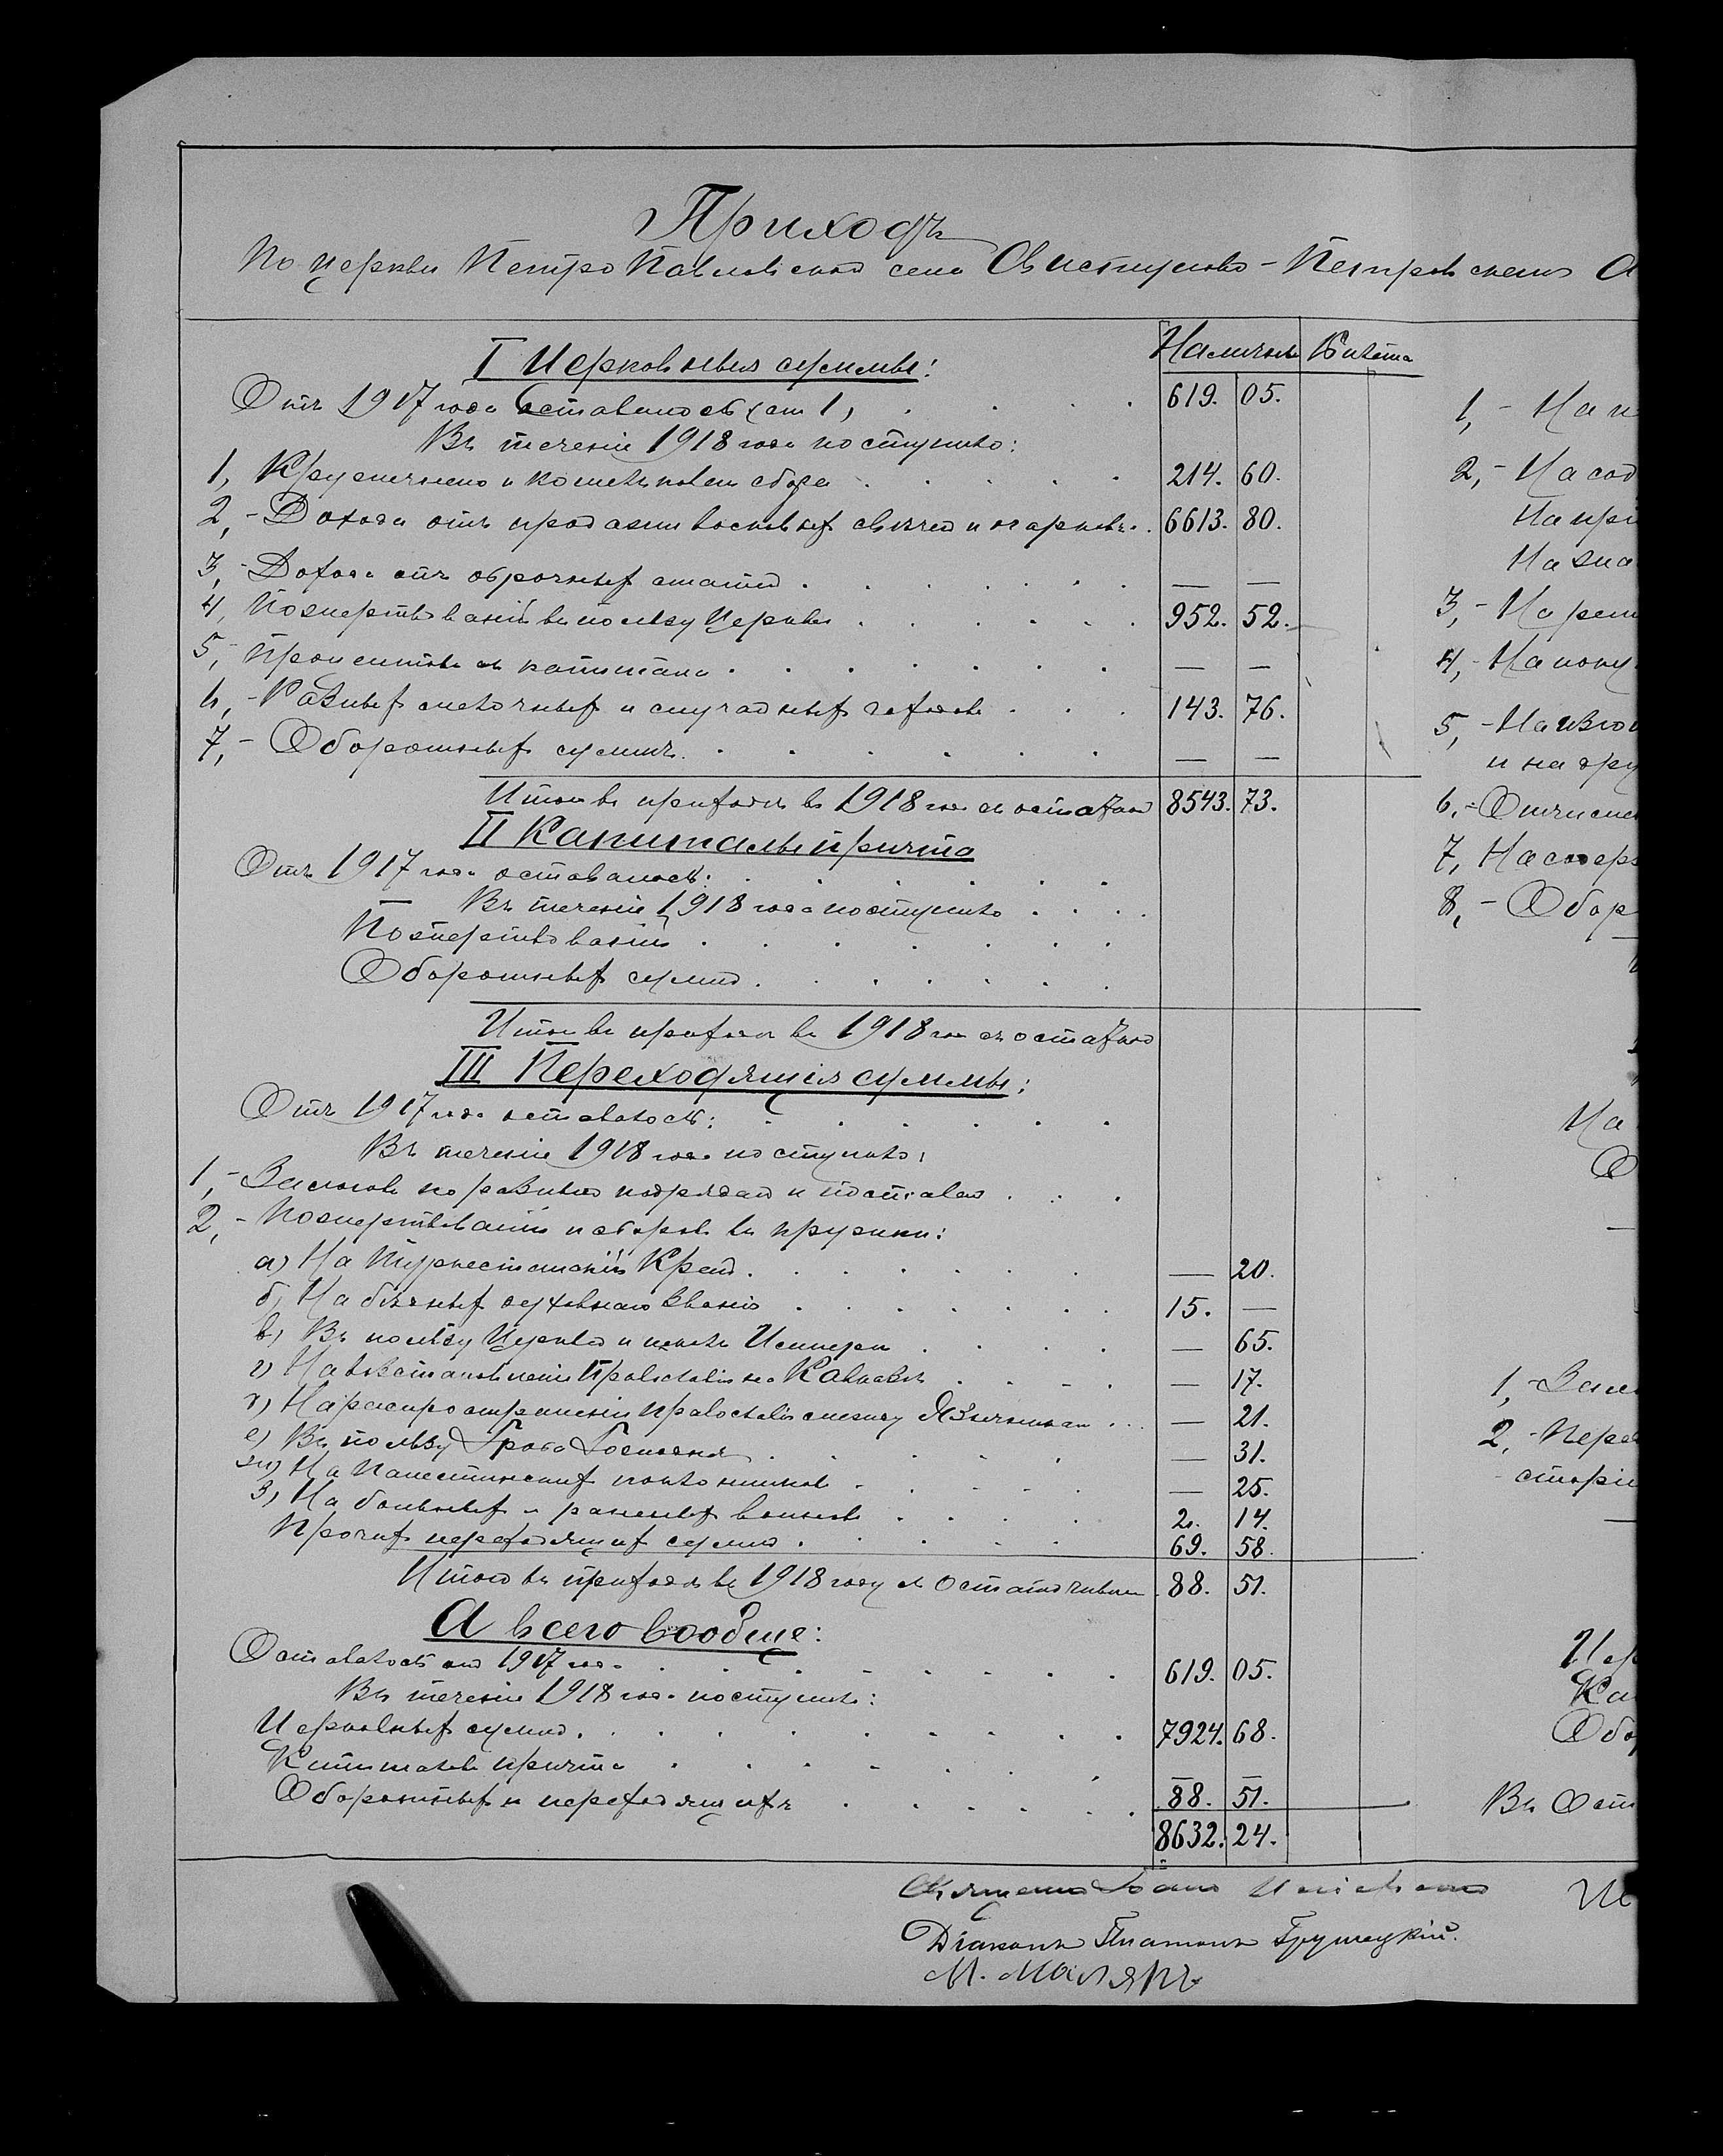 Приходъ
По церкви Петро Павловской села Свистуново-Петровскаго
Наличны Билета
I Церковныя суммы:
Отъ 1917 года оставалось 619. 05.
Въ теченіе 1918 года поступило:
1, Кружечнаго и кошельковаго сбора 214. 60.
2, - Дохода отъ продажи восковыхъ свѣчей и огарковъ 6613. 80.
3, - Дохода отъ оброчныхъ статей — —
4, Пожертвованій въ пользу церкви 952. 52.
5, - Процентовъ съ капитала — —
6, - Разныхъ мелочныхъ и случайныхъ доходовъ 143. 76.
7, - Оборотныхъ суммъ — —
Итого въ приходѣ въ 1918 год съ остатком 8543. 73.
II Капиталы причта
Отъ 1917 года оставалось:
Въ теченіе 1918 года поступило
Пожертвованій
Оборотныхъ суммъ
Итого въ приходѣ въ 1918 год съ остатком
III Переходящія суммы:
Отъ 1917 года оставалось:
Въ теченіе 1918 года поступило:
1, - Залоговъ по разнымъ подрядам и поставкам
2, - Пожертвованій и сборов въ кружки:
а) На Туркестанскій Край — 20.
б) На бѣдныхъ духовнаго званія 15. —
в) Въ пользу Церквей и школъ Имперіи — 65.
г) На возстановленіе Православія на Кавказѣ — 17.
д) На распространеніе православія между Язычниками — 21.
е) Въ пользу Гроба Господня — 31.
ж) На Палестинских поклонников — 25.
з) На больныхъ и раненыхъ воиновъ 2. 14.
Прочих переходящих суммъ 69. 58.
Итого въ приходѣ въ 1918 году съ Остаточными 88. 51.
А всего вообще:
Оставалось от 1917 года 619. 05.
Въ теченіе 1918 года поступило:
Церковных суммъ 7924. 68.
Капиталов причта — —
Оборотных и переходящихъ 88. 51.
8632. 24.
Діаконъ Платонъ Грушецкій.
М. Маляръ
1, - На
2, - На сод
На
3, - На рем
4, - На поку
5, -
и на дру
6, - Отчислен
7, На содер
8, - Обор
На
О
1, - Зал
2, - Пере
Цер
Ка
Обо
Въ Ост